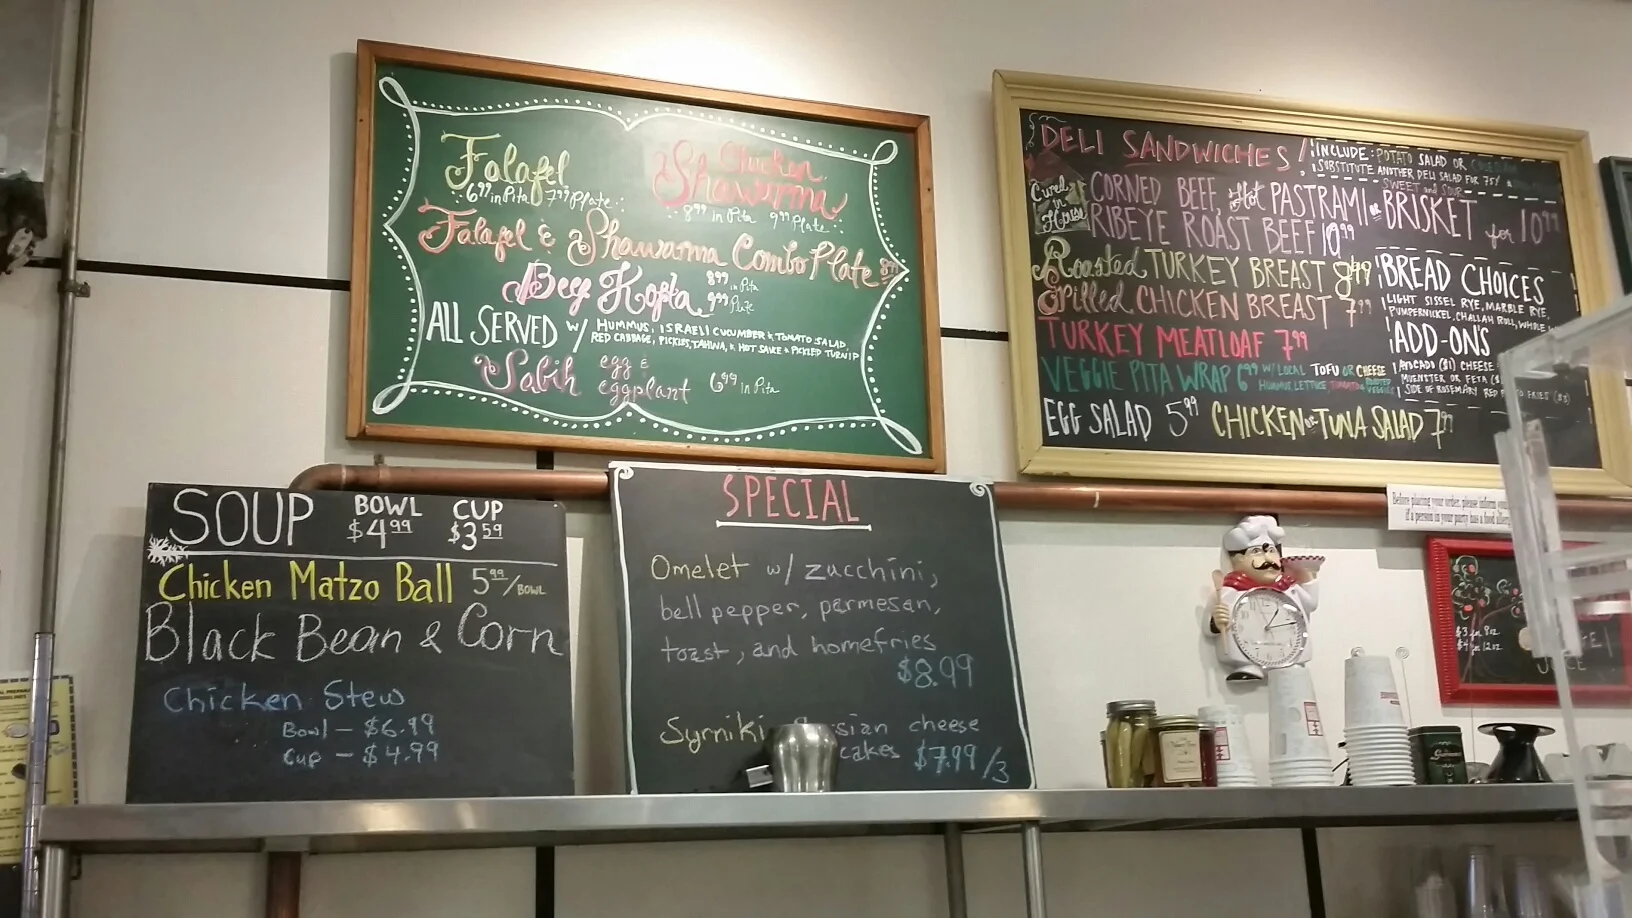 Falafel
6.99 in Pita 7.99 Plate
Chicken
Shawarma
8.99 in Pita 9.99 Plate
Falafel & Shawarma Combo Plate
Beef Kofta 8.99 in Pita
9.99 Plate
ALL SERVED W/ HUMMUS, ISRAELI CUCUMBER & TOMATO SALAD,
RED CABBAGE, PICKLES, TAHINA, & HOT SAUCE & PICKLED TURNIP
Sabih egg &
eggplant 6.99 in Pita
DELI SANDWICHES!
INCLUDE: POTATO SALAD OR
SUBSTITUTE ANOTHER DELI SALAD FOR 75¢
Cured in House
CORNED BEEF, Hot PASTRAMI or SWEET and SOUR BRISKET for 10.99
RIBEYE ROAST BEEF 10.99
Roasted TURKEY BREAST 8.99
Grilled CHICKEN BREAST 7.99
TURKEY MEATLOAF 7.99
VEGGIE PITA WRAP 6.99 W/ LOCAL TOFU OR CHEESE
HUMMUS LETTUCE TOMATO ROASTED VEGGIES
EGG SALAD 5.99 CHICKEN or TUNA SALAD 7.99
BREAD CHOICES
LIGHT SISSEL RYE, MARBLE RYE,
PUMPERNICKEL, CHALLAH ROLL, WHOLE
ADD-ON'S
AVOCADO ($1) CHEESE
MUENSTER OR FETA
SIDE OF ROSEMARY RED FRIES ($3)
SOUP BOWL CUP
$4.99 $3.59
Chicken Matzo Ball 5.99/BOWL
Black Bean & Corn
Chicken Stew
Bowl - $6.99
Cup - $4.99
SPECIAL
Omelet w/ zucchini,
bell pepper, parmesan,
toast, and homefries
$8.99
Syrniki cheese
cakes $7.99/3
Before placing your order, please inform
if a person in your party has a food